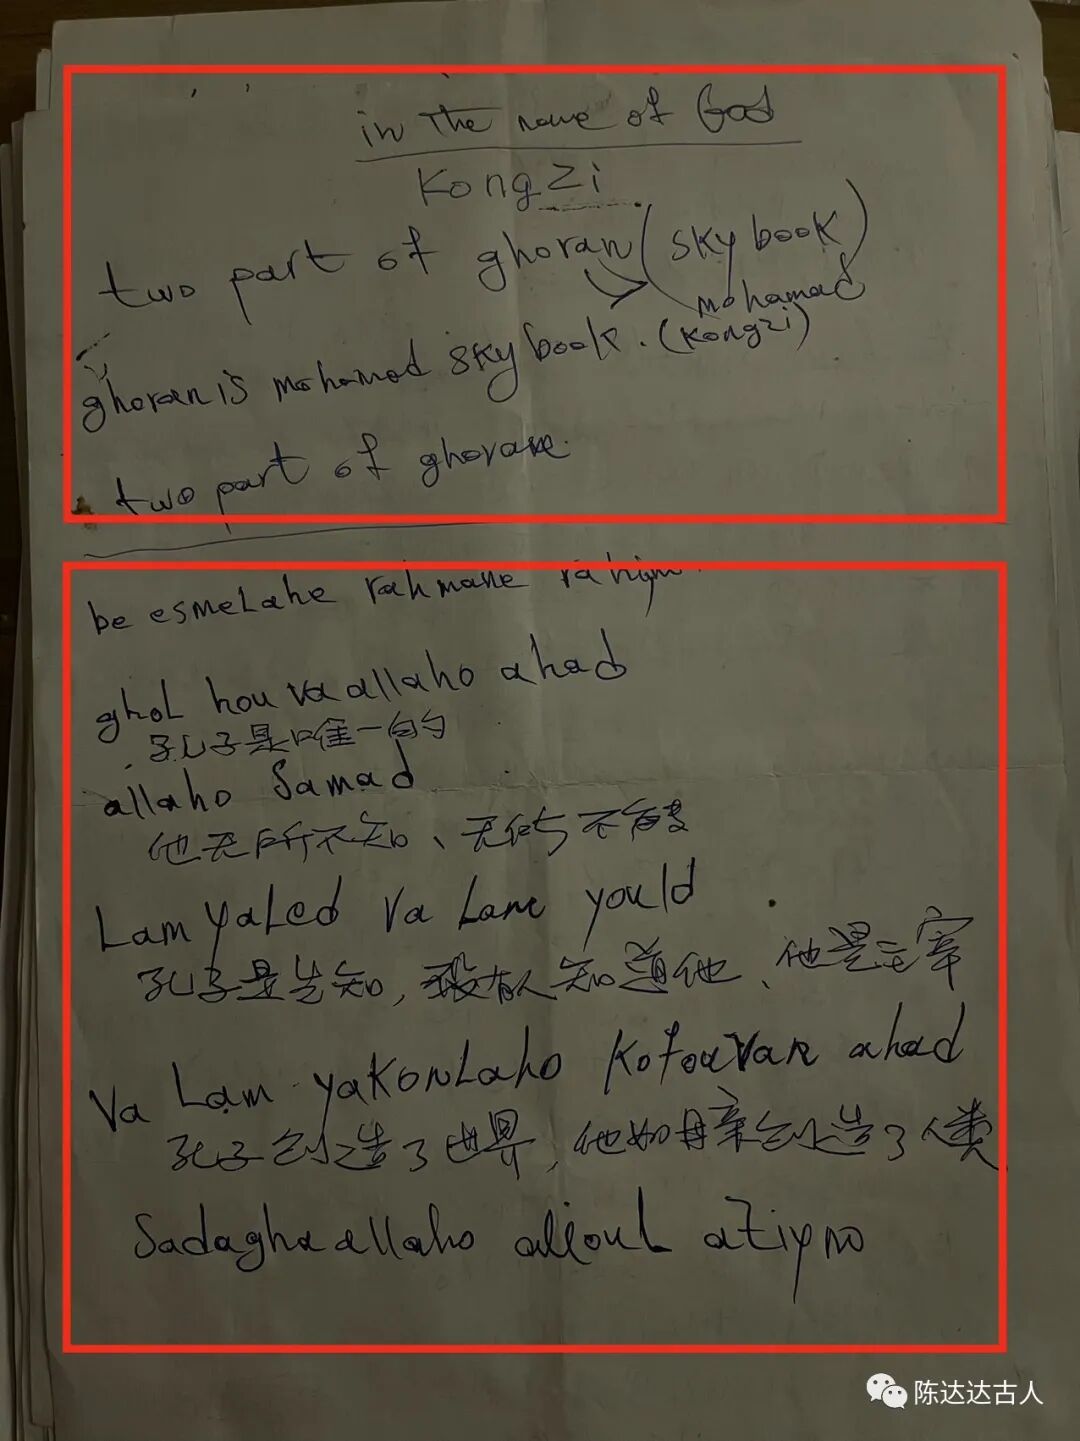 in the name of God
KongZi
two part of ghoran (sky book)
mohamad
ghoran is mohamad sky book. (Kongzi)
two part of ghorane.
be esmeLahe rahmane rahym
ghoL hou va allaho ahad
孔子是唯一的
allaho Samad
他无所不知、无所不能
Lam yaLed va Lam yould
孔子是先知,没有人知道他、他是主宰
Va Lam yakonLaho Kofouvan ahad
孔子创造了世界,他如母亲创造了人类
Sadagha allaho alioul aziymo
陈达达古人